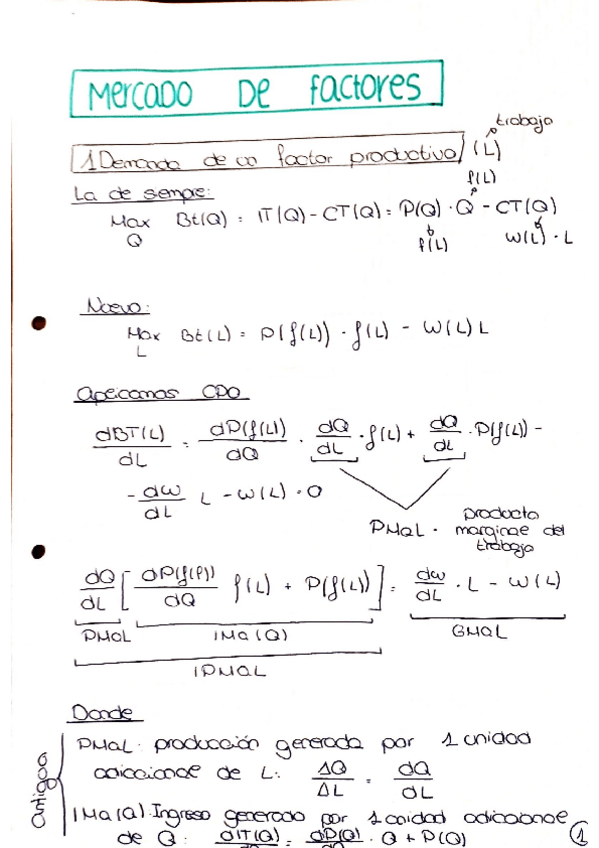 Mercado De factores
trabajo
1 Demanda de un factor productivo (L)
La de siempre:
f(L)
Max Bt(Q) = IT(Q) - CT(Q) = P(Q) · Q - CT(Q)
Q
f(L)
W(L) · L
Nuevo:
Max Bt(L) = P(f(L)) · f(L) - W(L) L
L
Aplicamos CPO
dBT(L)/dL = dP(f(L))/dQ · dQ/dL · f(L) + dQ/dL · P(f(L)) -
- dw/dL L - W(L) = 0
PMaL = producto
marginal del
trabajo
dQ/dL [dP(f(P))/dQ f(L) + P(f(L))] = dw/dL · L - W(L)
PMaL IMa(Q) GMaL
IPMaL
Donde
antigoo
PMaL: producción generada por 1 unidad
adiccional de L: ΔQ/ΔL = dQ/dL
IMa(Q): Ingreso generado por 1 unidad adiccional
de Q: dIT(Q) = dP(Q) · Q + P(Q)
1